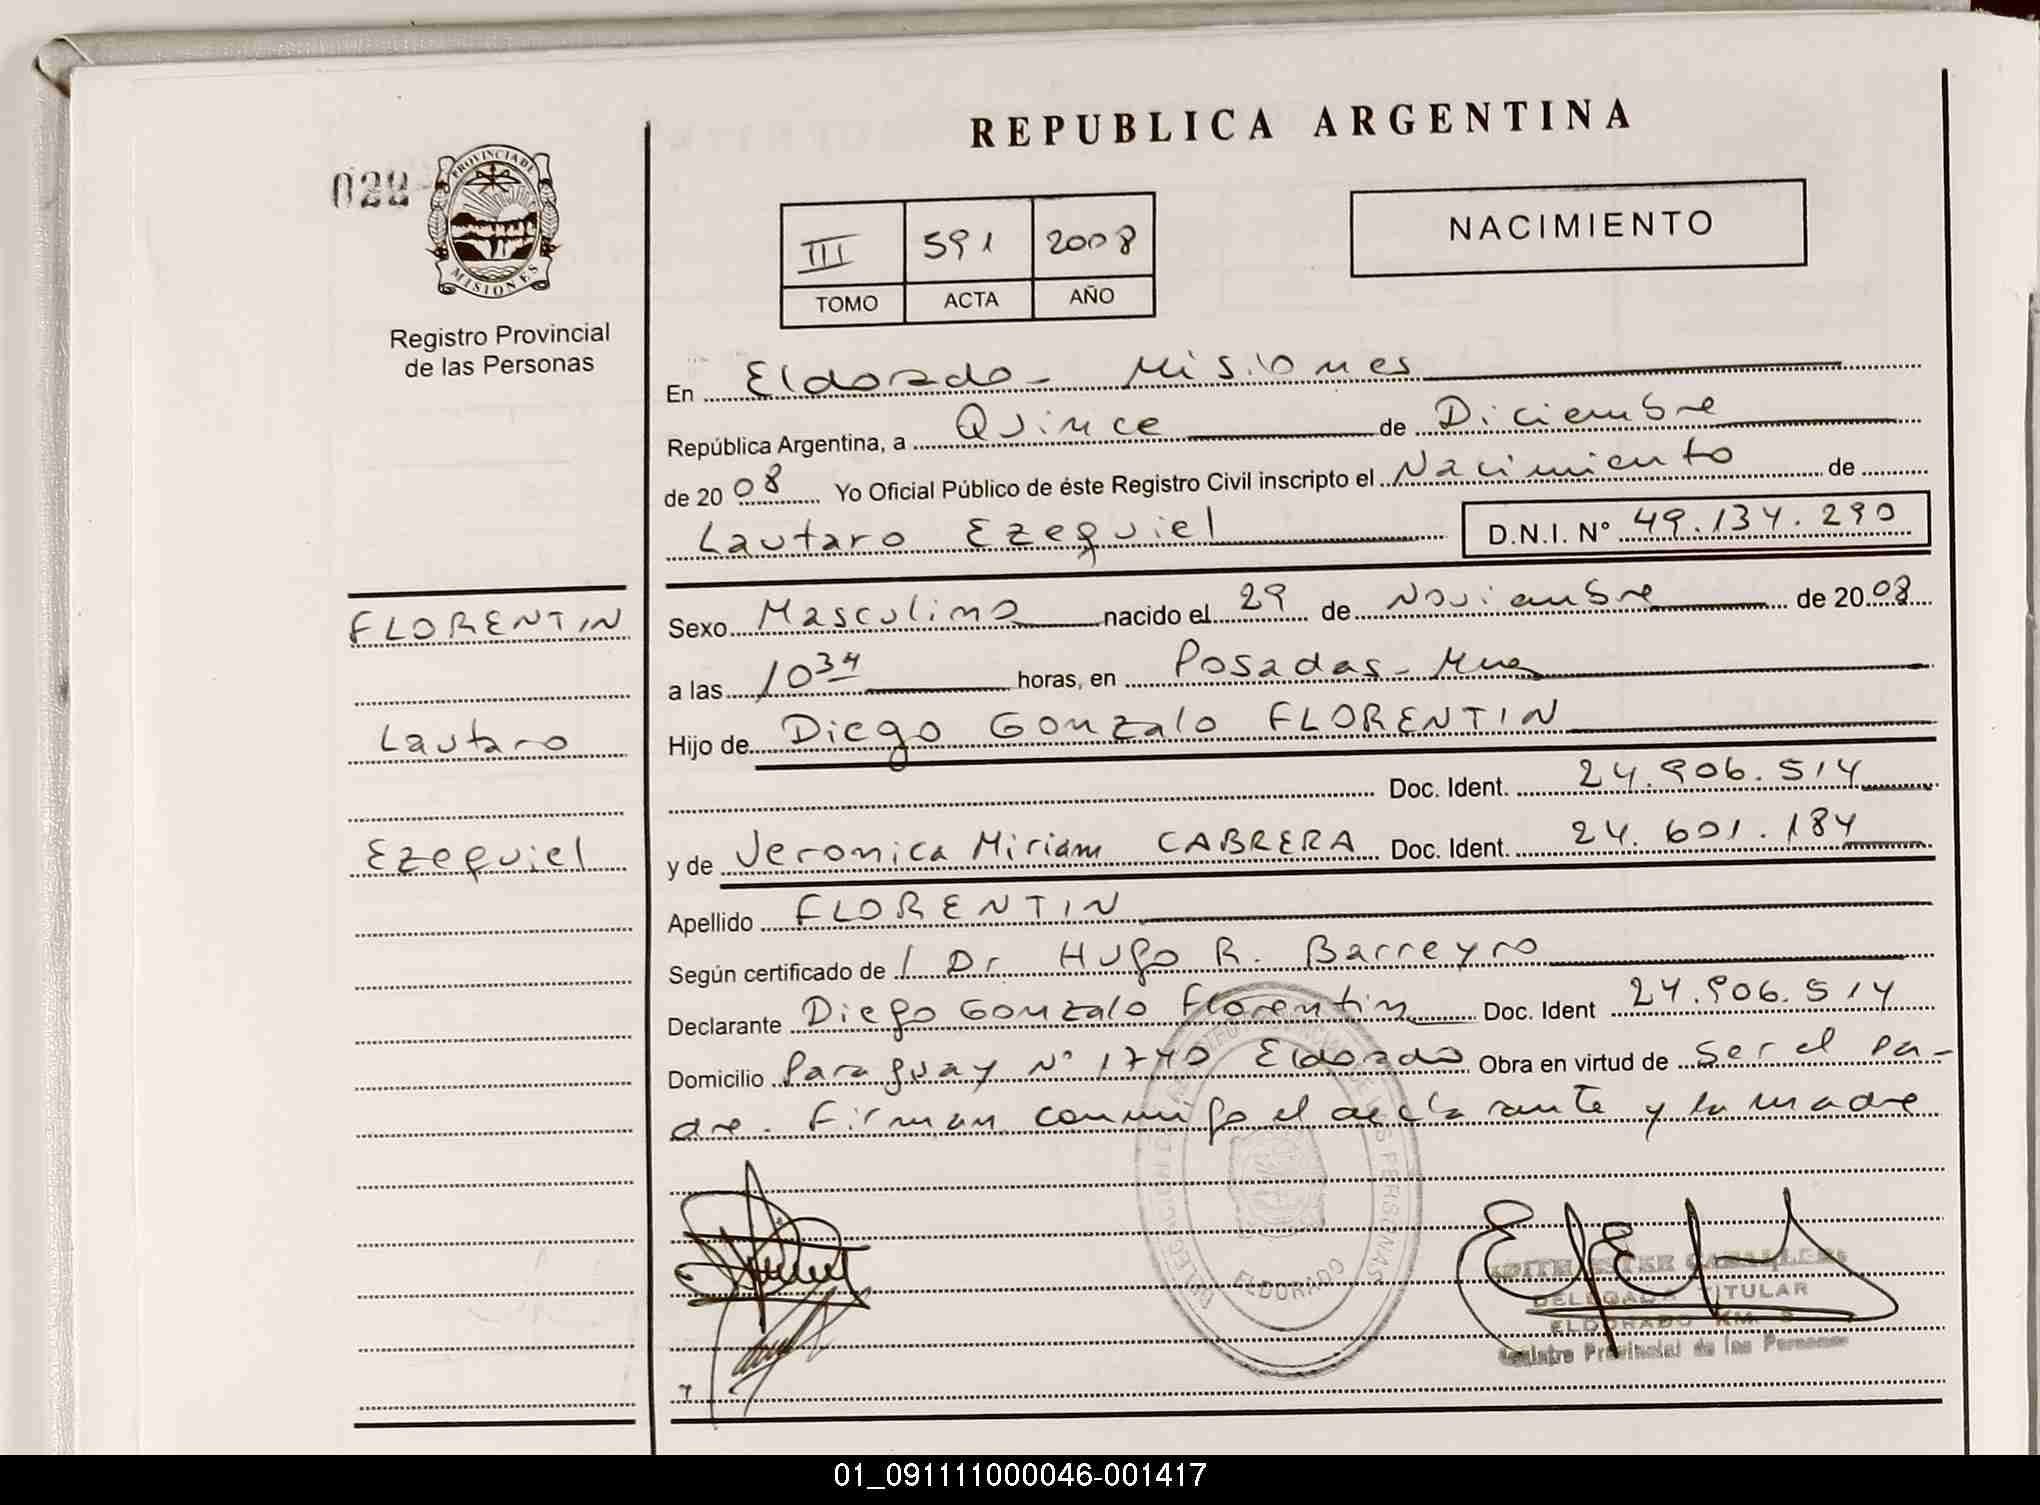 REPUBLICA ARGENTINA
028
PROVINCIA DE
MISIONES
Registro Provincial
de las Personas
III 591 2008
TOMO ACTA AÑO
NACIMIENTO
En Eldorado - Misiones
República Argentina, a Quince de Diciembre
de 2008 Yo Oficial Público de éste Registro Civil inscripto el Nacimiento de
Lautaro Ezequiel D.N.I. Nº 49.134.290
FLORENTIN
Lautaro
Ezequiel
Sexo Masculino nacido el 29 de Noviembre de 2008
a las 10 34 horas, en Posadas - Mnes
Hijo de Diego Gonzalo FLORENTIN
Doc. Ident. 24.906.514
y de Veronica Miriam CABRERA Doc. Ident. 24.601.184
Apellido FLORENTIN
Según certificado de / Dr Hugo R. Barreyro
Declarante Diego Gonzalo Florentin Doc. Ident 24.906.514
Domicilio Paraguay Nº 1740 Eldorado Obra en virtud de ser el pa-
dre. Firman conmigo el declarante y la madre
PERSONAS
ELDORADO
DELEGADA TITULAR
ELDORADO KM.
Registro Provincial de las Personas
01_091111000046-001417